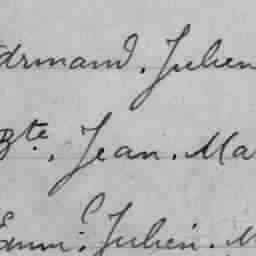 drmand. Julien
Bte. Jean. Ma
Edum. Julien. M